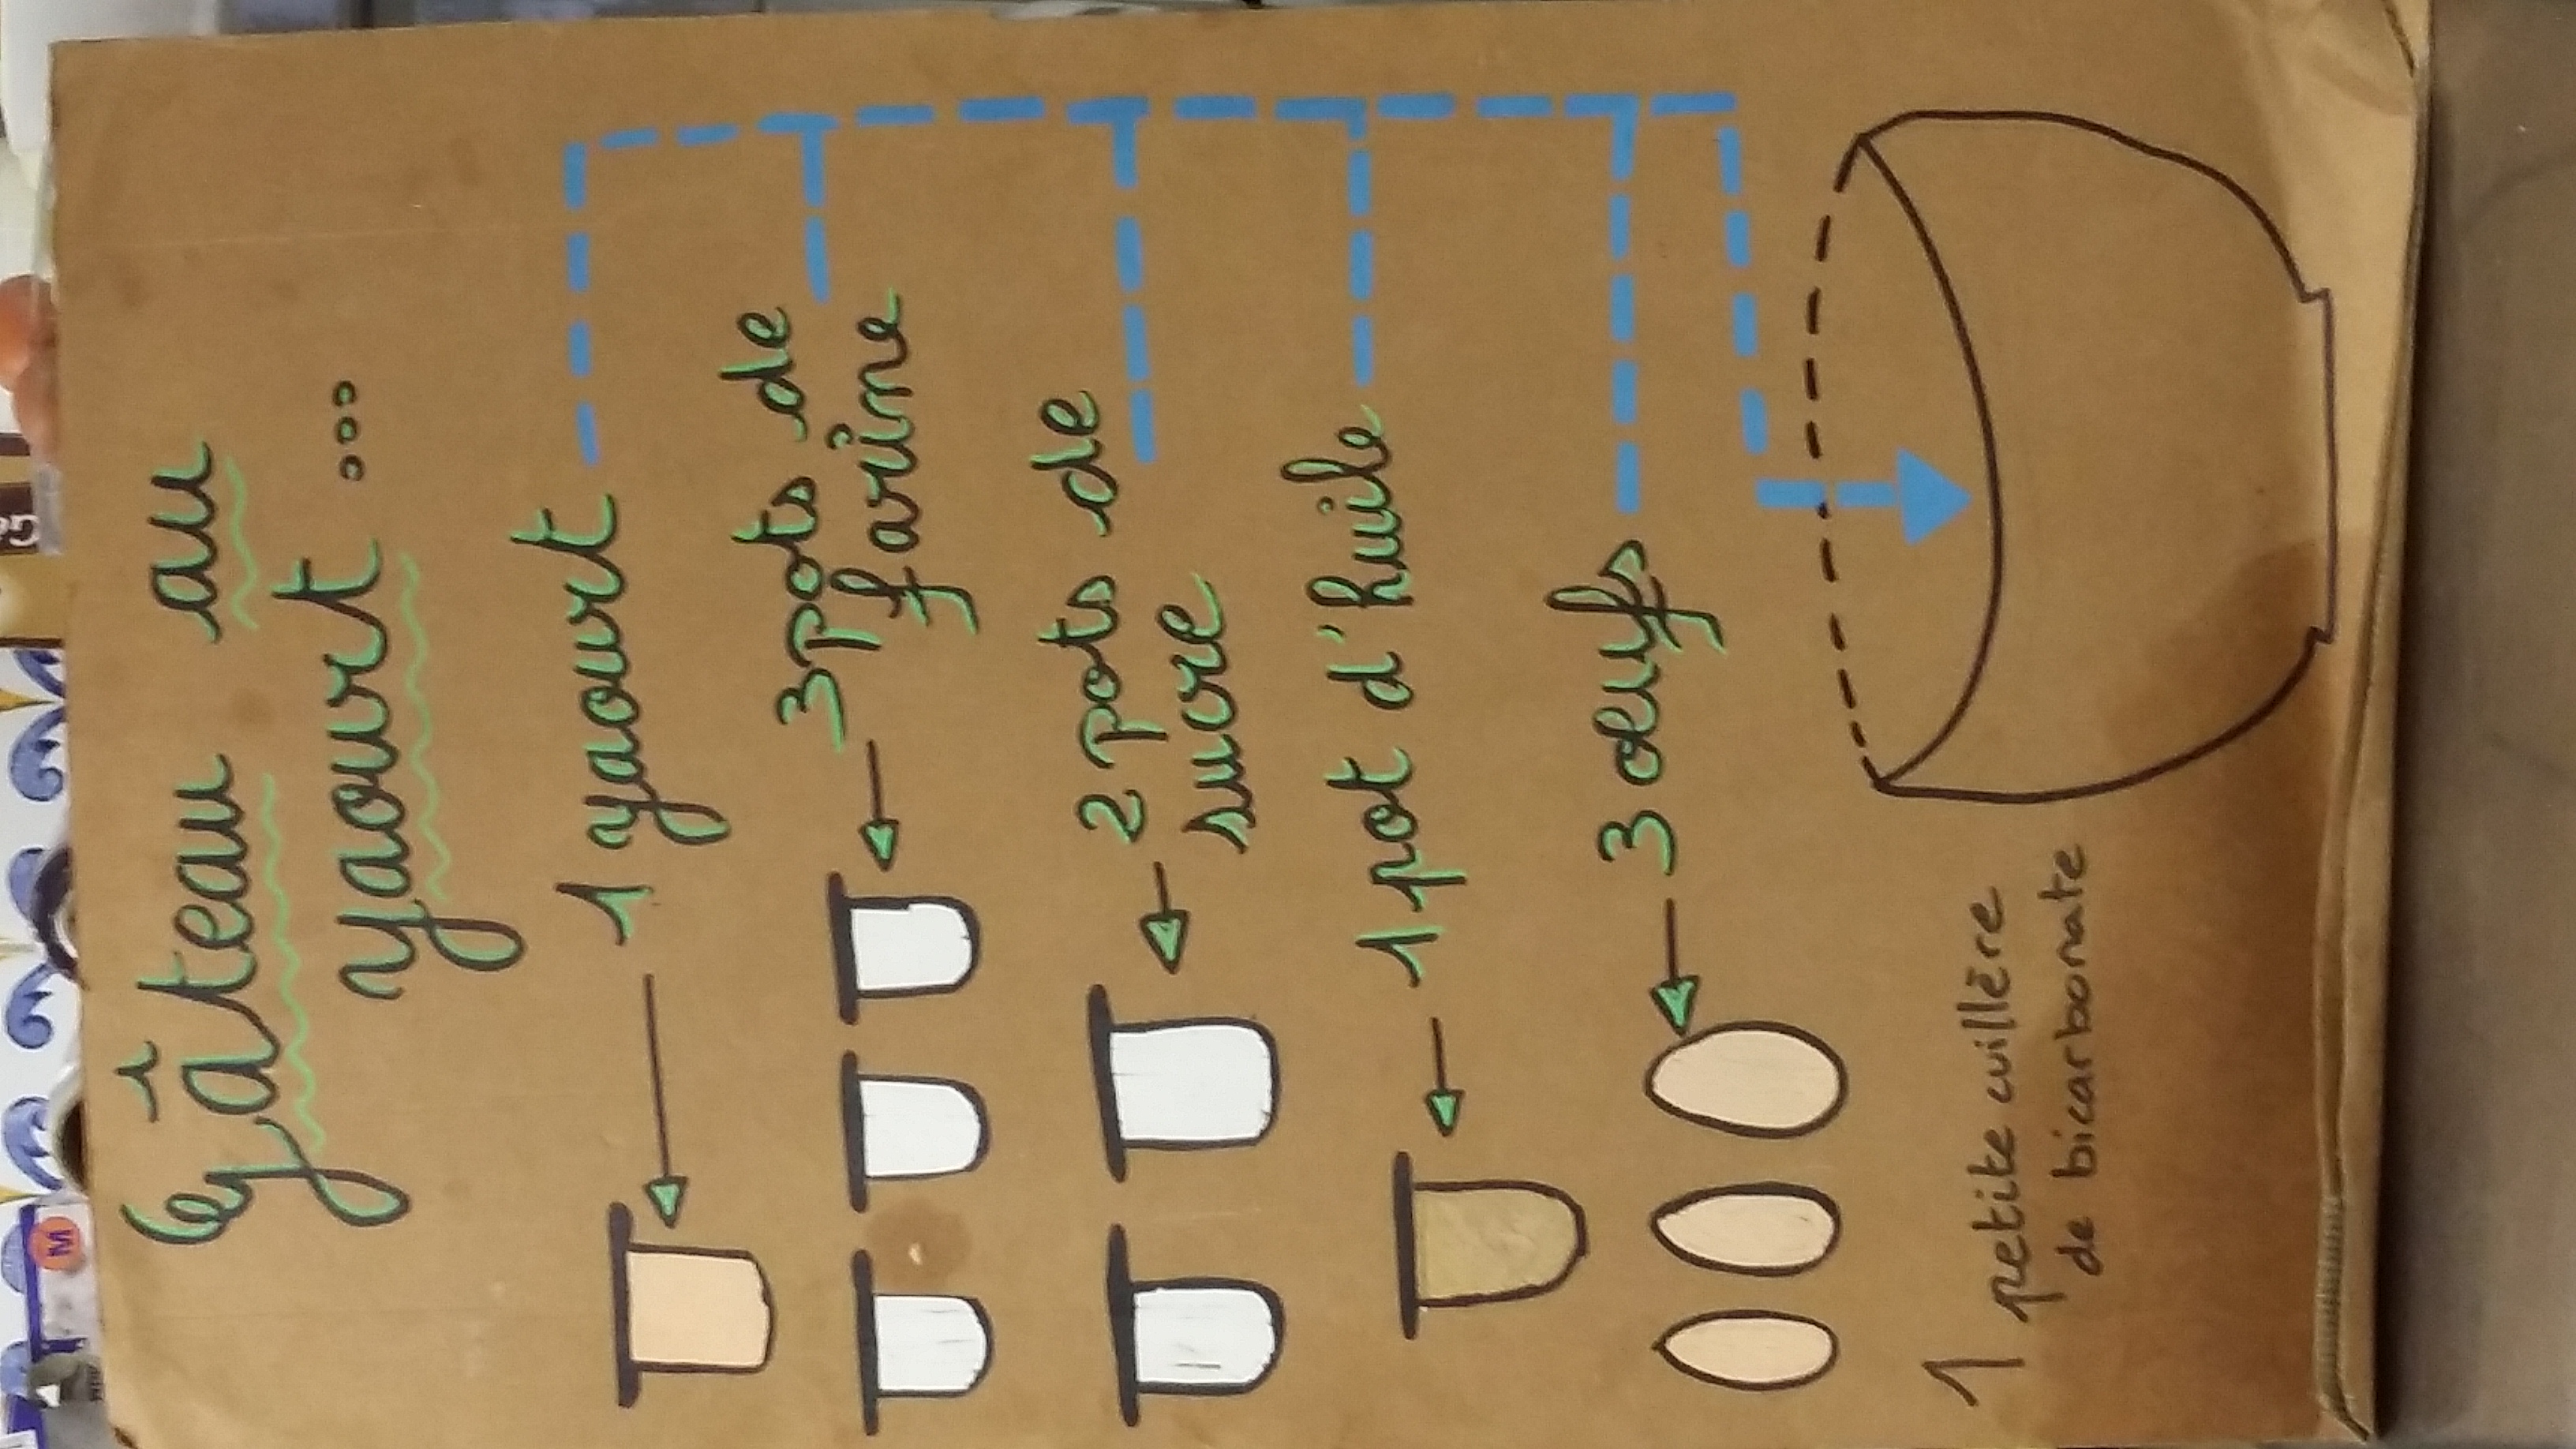 Gâteau au
yaourt ...
1 yaourt
3 pots de
farine
2 pots de
sucre
1 pot d'huile
3 oeufs
1 petite cuillère
de bicarbonate
M